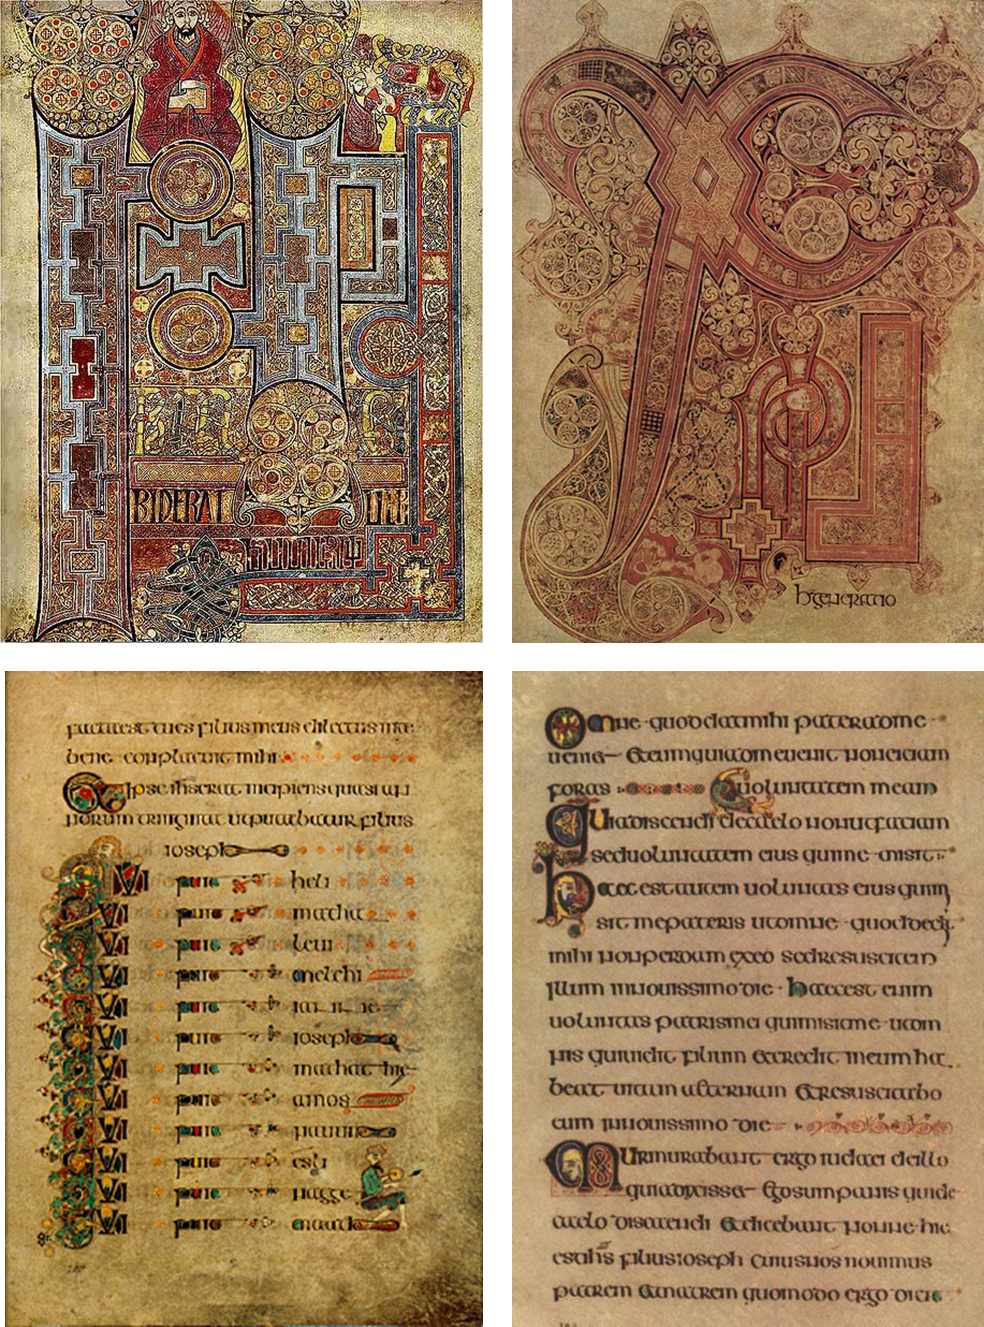 ERAT
h generatio
factaest tues filius meus dilectus inte
bene conplacuit mihi
Et ipse ihs erat incipiens quasi an
norum triginta ut putabatur filius
ioseph
QUI fuit heli
QUI fuit matha
QUI fuit leui
QUI fuit melchi
QUI fuit iannae
QUI fuit ioseph
QUI fuit mathathie
QUI fuit amos
QUI fuit nauum
QUI fuit esli
QUI fuit nagge
QUI fuit
Omne quod dat mihi pater adme
ueniet Et eum qui adme uenit non eiciam
foras uoluntatem meam
Quia discendi decaelo non ut faciam
sed uoluntatem eius qui me misit
haec est autem uoluntas eius qui m
sit me patris ut omne quod dedit
mihi non perdam ex eo sed resuscitem
illum innouissimo die haec est enim
uoluntas patris mei qui misit me ut om
nis qui uidit filium et credit in eum ha
beat uitam aeternam et resuscitabo
eum innouissimo die
Murmurabant ergo iudaei de illo
quia dixisset Ego sum panis qui de
caelo discendi et dicebant nonne hic
est ihs filius ioseph cuius nos nouimus
patrem et matrem quomodo ergo dicit